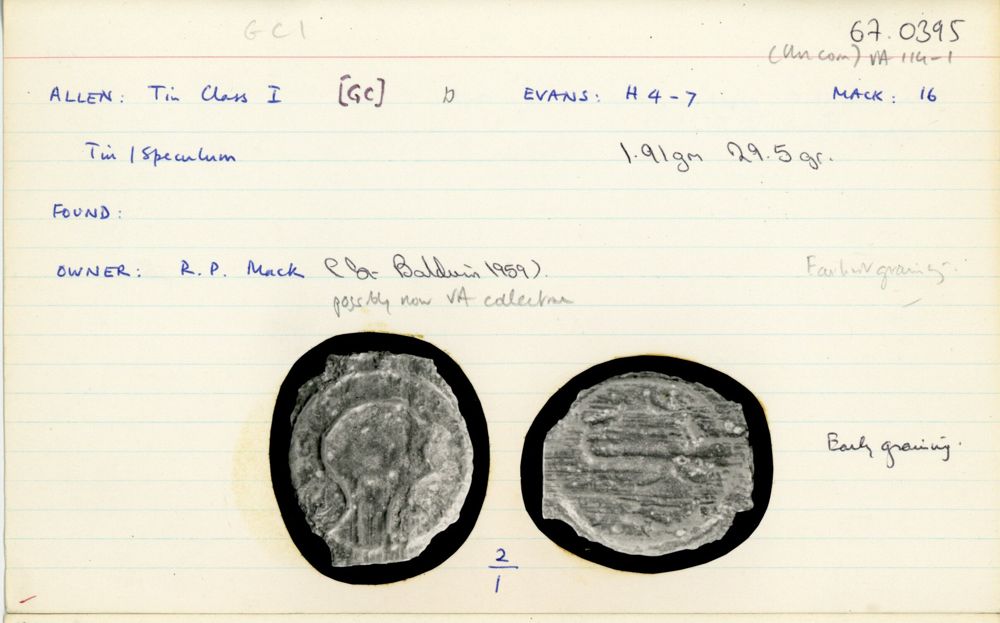 GC1 67.0395
(Uncom) VA 114-1
ALLEN: Tin Class I [GC] D EVANS: H 4-7 MACK: 16
Tin / Speculum 1.91gm 29.5 gr.
FOUND:
OWNER: R. P. Mack (Baldwin 1959). graining.
possibly now VA collection
Early graining.
2
1